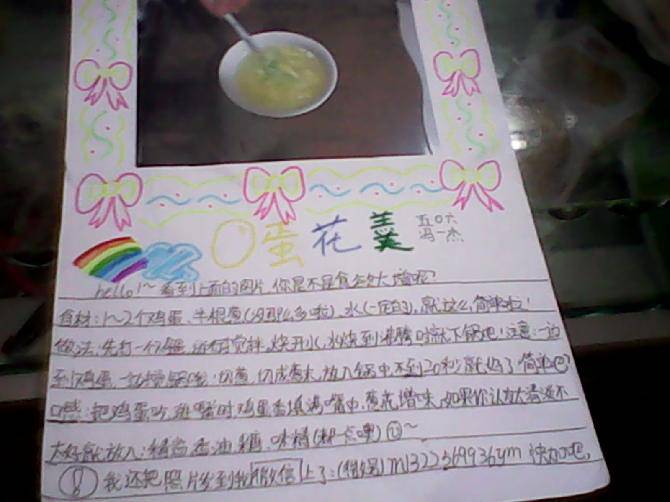 〇蛋花羹
五〇六
冯一杰
hello!~ 看到上面的图片,你是不是食欲大增呢?
食材:1~2个鸡蛋、半根葱(没那么多啦)、水(一定的),就这么简单啦!
做法:先打一个蛋,进行搅拌,烧开水,水烧到沸腾时就下锅吧!注意:一边
到鸡蛋,一边搅锅哦,切葱,切成葱末,放入锅中不到20秒就好了简单吧?
口感:把鸡蛋吃进嘴时,鸡蛋香填满嘴中,葱花增味,如果你认为味道还不
太好就放入:精盐、香油、糖、味精
我还把照片发到我微信上了:
快加吧,